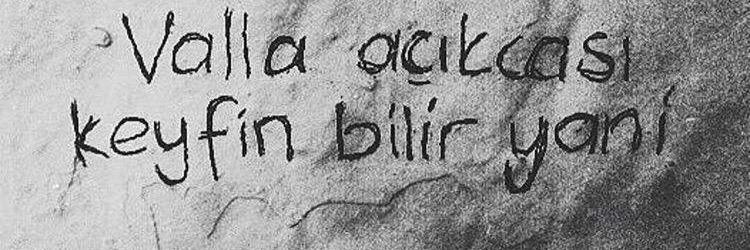 Valla açıkcası
keyfin bilir yani